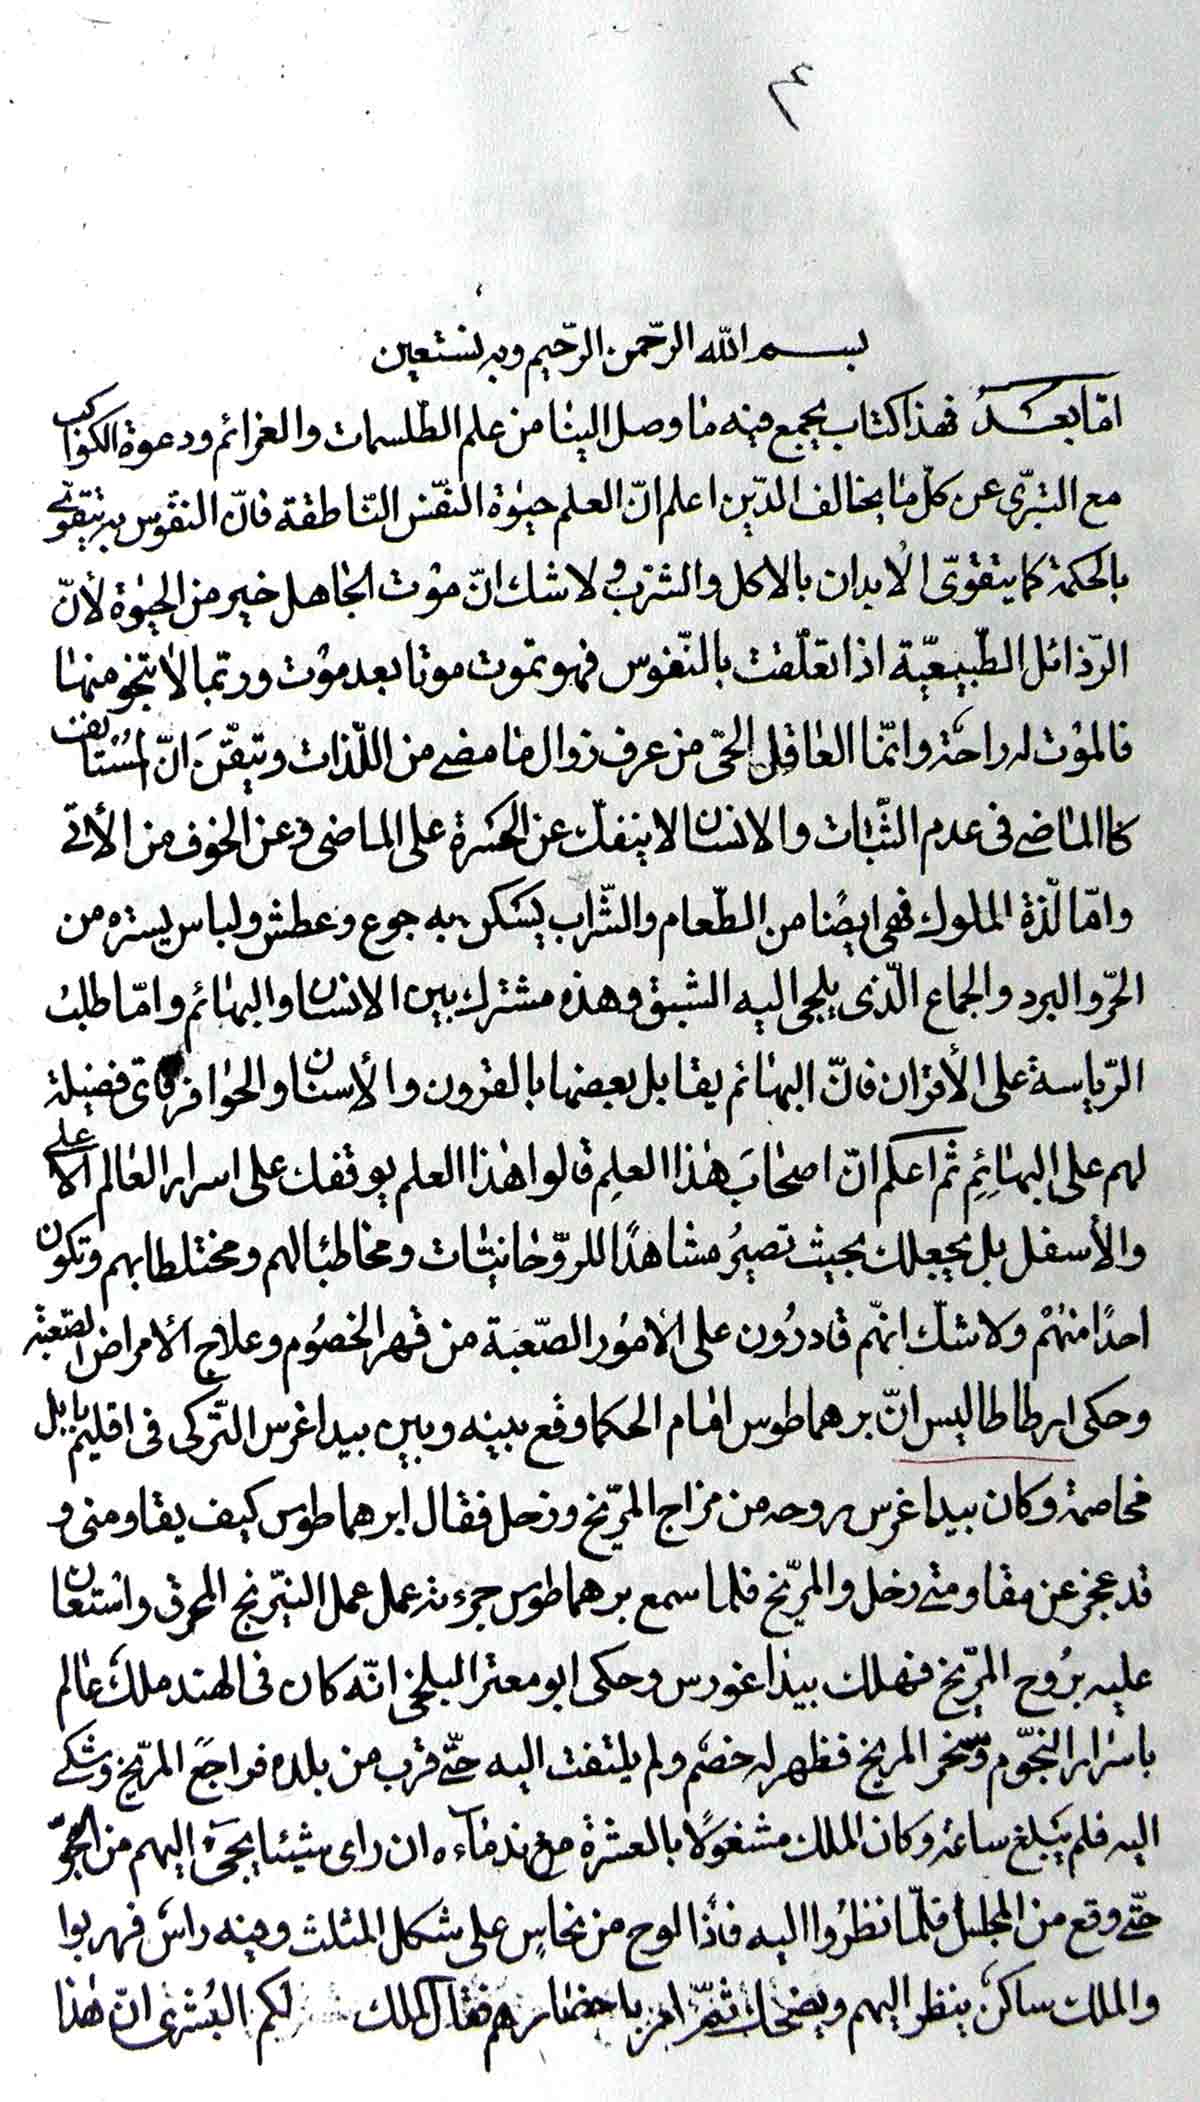 ٤
بسم الله الرّحمن الرّحيم وبه نستعين
امّا بعد فهذا كتاب يجمع فيه ما وصل الينا من علم الطّلسمات والعزائم ودعوة الكواكب
مع التبرّى عن كلّ ما يخالف الدّين اعلم انّ العلم حيوة النّفس النّاطقة فانّ النفوس به يتقوّى
بالحكمة كما يتقوّى الابدان بالاكل والشرب ولا شك انّ موت الجاهل خير من الحيوة لأنّ
الرّذائل الطّبيعيّة اذا تعلّقت بالنّفوس فهو تموت موتا بعد موت وربّما لا ينجو منها
فالموت له راحة وانّما العاقل الحىّ من عرف زوال ما مضى من اللّذات وتيقّن انّ المستانف
كالماضى فى عدم الثّبات والانسان لا ينفك عن الحسرة على الماضى وعن الخوف من الأتى
وامّا لذّة الملوك فهى ايضًا من الطّعام والشّراب يسكن به جوع وعطش ولباس يستره من
الحرّ والبرد والجماع الّذى يلجى اليه الشبق وهذه مشترك بين الانسان والبهائم وامّا طلب
الرّياسة على الأقران فانّ البهائم يقابل بعضها بالقرون والأسنان والحوافر فاى فضيلة
لهم على البهائم ثم اعلم انّ اصحاب هٰذا العلم قالوا هذا العلم يوقفك على اسرار العالم الاعلى
والأسفل بل يجعلك بحيث تصير مشاهدًا للرّوحانيّات ومخاطبا لهم ومختلطا بهم وتكون
احدًا منهم ولا شك انهّم قادرون على الأمور الصّعبة من قهر الخصوم وعلاج الأمراض الصّعبة
وحكى ارطاطاليس انّ برهماطوس امام الحكما وقع بينه وبين بيداغرس التّركى فى اقليم بابل
مخاصمة وكان بيداغرس روحه من مزاج المرّيخ وزحل فقال ابرهماطوس كيف يقاومنى و
قد عجز عن مقاومتى زحل والمرّيخ فلما سمع برهماطوس جرءته عمل عمل النيّرنج المحرق واستعان
عليه بروح المرّيخ فهلك بيداغورس وحكى ابو معشر البلخى انّه كان فى الهند ملك عالم
باسرار النّجوم وسخر المريخ فظهر له خصم ولم يلتفت اليه حتّى قرب من بلده فراجع المرّيخ وشكى
اليه فلم يبلغ ساعة وكان الملك مشغولًا بالعشرة مع ندماءه ان راى شيئا يجىء اليهم من الجوّ
حتّى وقع من المجلس فلمّا نظروا اليه فاذا لوح من نحاس على شكل المثلث وفيه راس فهربوا
والملك ساكن ينظر اليهم ويضحك ثمّ امر باحضارهم فقال الملك لكم البشرى انّ هٰذا